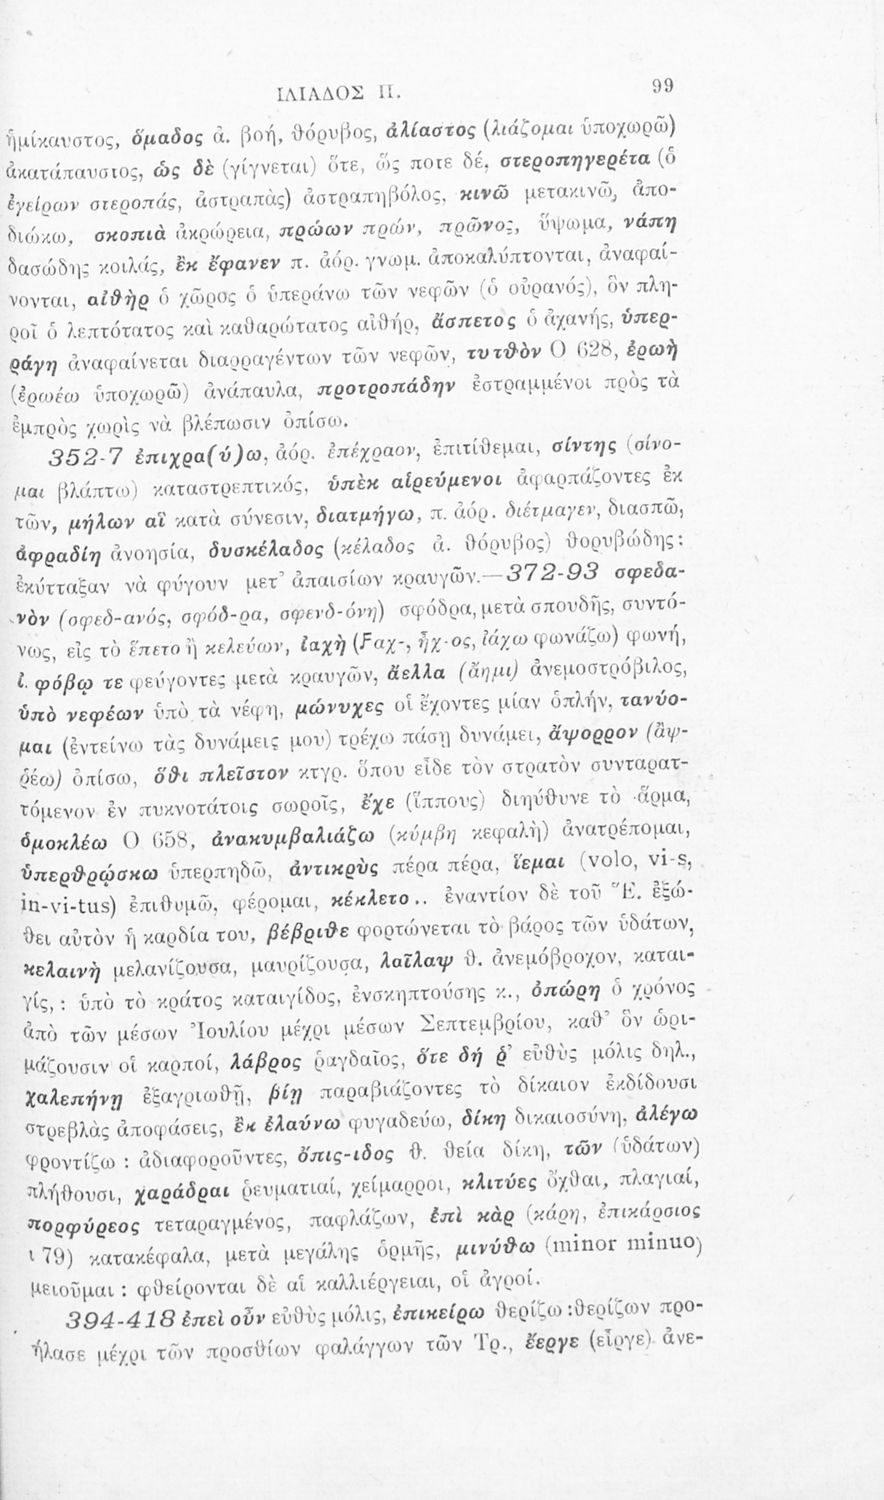 ΙΛΙΑΔΟΣ Π. 99
ἡμίκαυστος, ὅμαδος ἀ. βοή, θόρυβος, ἀλίαστος (λιάζομαι ὑποχωρῶ)
ἀκατάπαυστος, ὡς δὲ (γίγνεται) ὅτε, ὥς ποτε δέ, στεροπηγερέτα (ὁ
ἐγείρων στεροπάς, ἀστραπὰς) ἀστραπηβόλος, κινῶ μετακινῶ, ἀπο-
διώκω, σκοπιὰ ἀκρώρεια, πρώων πρών, πρῶνος, ὕψωμα, νάπη
δασώδης κοιλάς, ἐκ ἔφανεν π. ἀόρ. γνωμ. ἀποκαλύπτονται, ἀναφαί-
νονται, αἰθὴρ ὁ χῶρος ὁ ὑπεράνω τῶν νεφῶν (ὁ οὐρανός), ὃν πλη-
ροῖ ὁ λεπτότατος καὶ καθαρώτατος αἰθήρ, ἄσπετος ὁ ἀχανής, ὑπερ-
ράγη ἀναφαίνεται διαρραγέντων τῶν νεφῶν, τυτθὸν Ο 628, ἐρωὴ
(ἐρωέω ὑποχωρῶ) ἀνάπαυλα, προτροπάδην ἐστραμμένοι πρὸς τὰ
ἐμπρὸς χωρὶς νὰ βλέπωσιν ὀπίσω.
352-7 ἐπιχρα(ύ)ω, ἀόρ. ἐπέχραον, ἐπιτίθεμαι, σίντης (σίνο-
μαι βλάπτω) καταστρεπτικός, ὑπὲκ αἱρεύμενοι ἀφαρπάζοντες ἐκ
τῶν, μήλων αἳ κατὰ σύνεσιν, διατμήγω, π. ἀόρ. διέτμαγεν, διασπῶ,
ἀφραδίη ἀνοησία, δυσκέλαδος (κέλαδος ἀ. θόρυβος) θορυβώδης:
ἐκύτταξαν νὰ φύγουν μετ' ἀπαισίων κραυγῶν.—372-93 σφεδα-
νὸν (σφεδ-ανός, σφόδ-ρα, σφενδ-όνη) σφόδρα, μετὰ σπουδῆς, συντό-
νως, εἰς τὸ ἕπετο ἢ κελεύων, ἰαχὴ (Ϝαχ-, ἦχ-ος, ἰάχω φωνάζω) φωνή,
ἰ. φόβῳ τε φεύγοντες μετὰ κραυγῶν, ἄελλα (ἄημι) ἀνεμοστρόβιλος,
ὑπὸ νεφέων ὑπὸ τὰ νέφη, μώνυχες οἱ ἔχοντες μίαν ὁπλήν, τανύο-
μαι (ἐντείνω τὰς δυνάμεις μου) τρέχω πάσῃ δυνάμει, ἄψορρον (ἂψ-
ῥέω) ὀπίσω, ὅθι πλεῖστον κτγρ. ὅπου εἶδε τὸν στρατὸν συνταρατ-
τόμενον ἐν πυκνοτάτοις σωροῖς, ἔχε (ἵππους) διηύθυνε τὸ ἅρμα,
ὁμοκλέω Ο 658, ἀνακυμβαλιάζω (κύμβη κεφαλὴ) ἀνατρέπομαι,
ὑπερθρώσκω ὑπερπηδῶ, ἀντικρὺς πέρα πέρα, ἵεμαι (volo, vi-s,
in-vi-tus) ἐπιθυμῶ, φέρομαι, κέκλετο.. ἐναντίον δὲ τοῦ Ἕ. ἐξώ-
θει αὐτὸν ἡ καρδία του, βέβριθε φορτώνεται τὸ βάρος τῶν ὑδάτων,
κελαινὴ μελανίζουσα, μαυρίζουσα, λαῖλαψ θ. ἀνεμόβροχον, καται-
γίς,: ὑπὸ τὸ κράτος καταιγίδος, ἐνσκηπτούσης κ., ὀπώρη ὁ χρόνος
ἀπὸ τῶν μέσων Ἰουλίου μέχρι μέσων Σεπτεμβρίου, καθ' ὃν ὡρι-
μάζουσιν οἱ καρποί, λάβρος ῥαγδαῖος, ὅτε δή ῥ' εὐθὺς μόλις δηλ.,
χαλεπήνῃ ἐξαγριωθῇ, βίῃ παραβιάζοντες τὸ δίκαιον ἐκδίδουσι
στρεβλὰς ἀποφάσεις, ἐκ ἐλαύνω φυγαδεύω, δίκη δικαιοσύνη, ἀλέγω
φροντίζω : ἀδιαφοροῦντες, ὄπις-ιδος θ. θεία δίκη, τῶν (ὑδάτων)
πλήθουσι, χαράδραι ῥευματιαί, χείμαρροι, κλιτύες ὄχθαι, πλαγιαί,
πορφύρεος τεταραγμένος, παφλάζων, ἐπὶ κὰρ (κάρη, ἐπικάρσιος
ι 79) κατακέφαλα, μετὰ μεγάλης ὁρμῆς, μινύθω (minor minuo)
μειοῦμαι : φθείρονται δὲ αἱ καλλιέργειαι, οἱ ἀγροί.
394-418 ἐπεὶ οὖν εὐθὺς μόλις, ἐπικείρω θερίζω :θερίζων προ-
ήλασε μέχρι τῶν προσθίων φαλάγγων τῶν Τρ., ἔεργε (εἶργε) ἀνε-